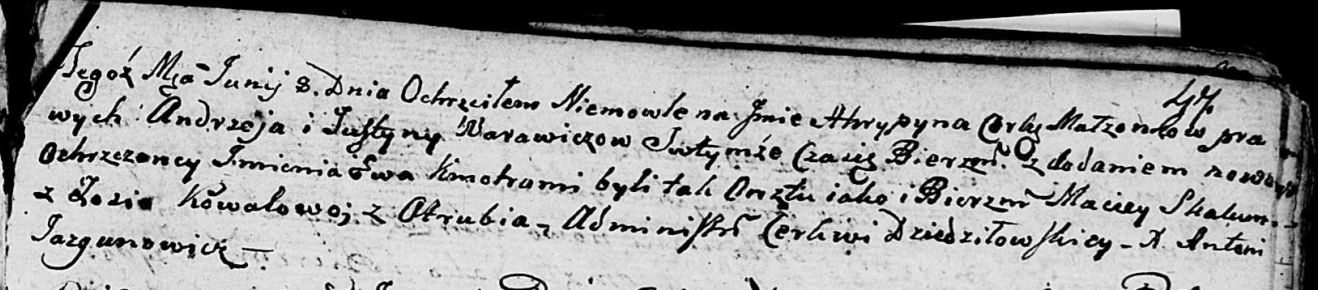 47
Tegoż Mca Junij 8. Dnia Ochrzciłem Niemowle na Jmie Ahrypyna Corkę Małzonkow pra
wych Andrzeja i Justyny Warawiczow Twtymże Czasię Bierzm. z dodaniem nowo
ochrzczoney Jmienia Ewa Kmotrami byli tak Chrztu iako i Bierzm Maciey Skakun
z Zosia Kowalowoj z Otrubia Administr Cerkwi Dziedziłowskiey X Antoni
Jazgunowicz